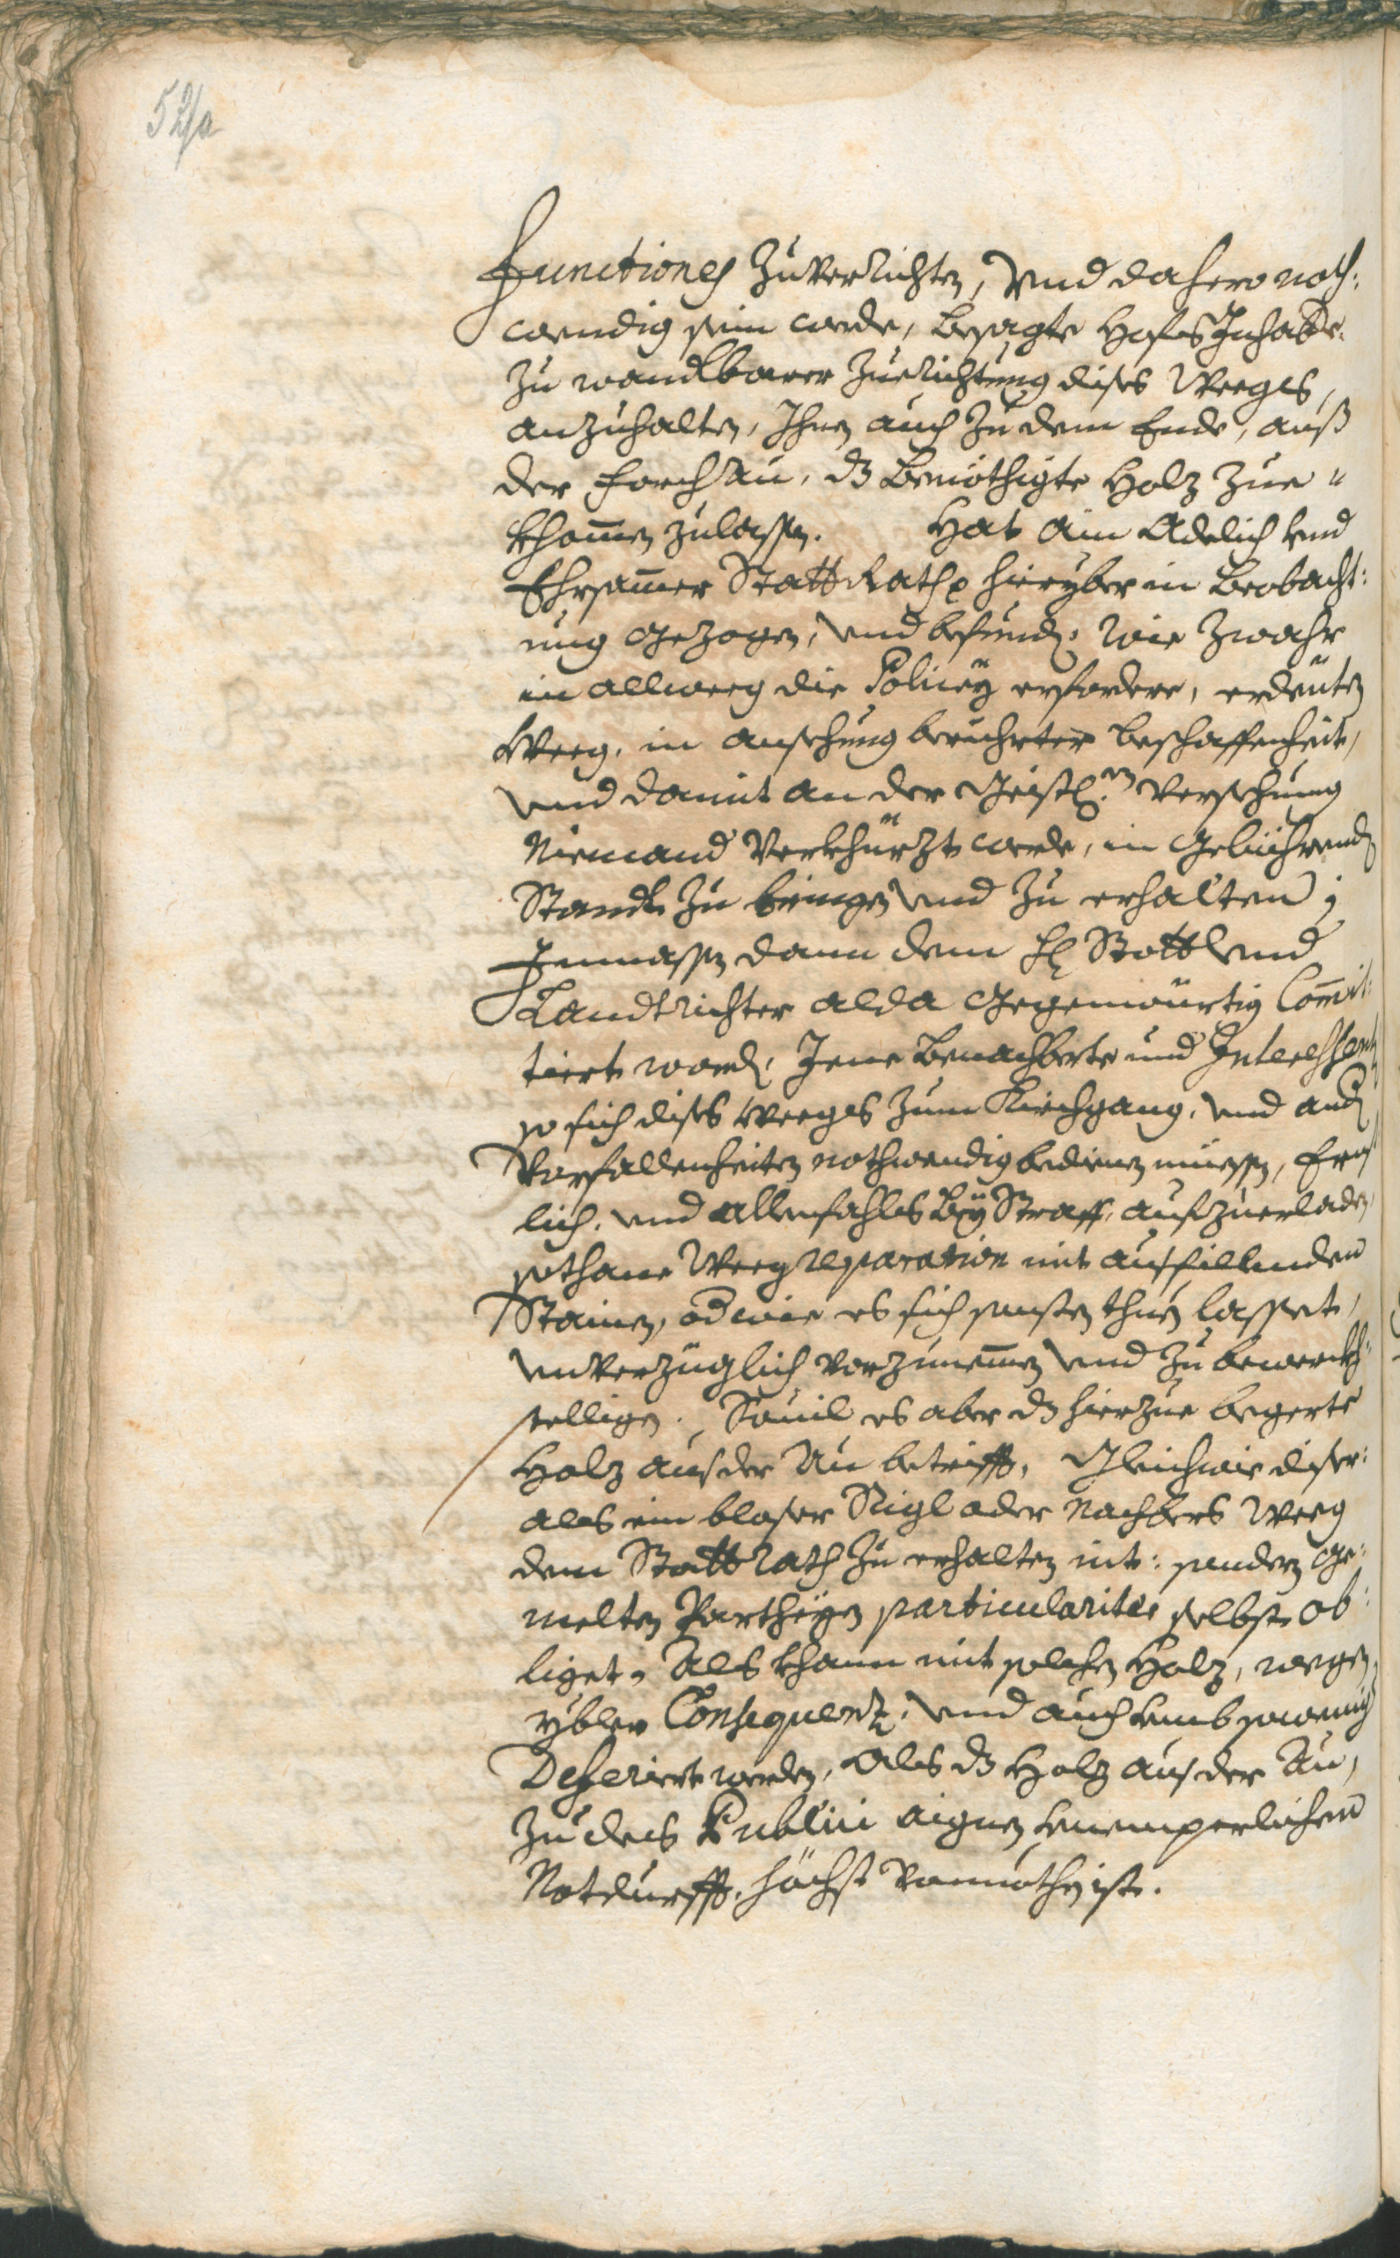 52/a
Functiones zuverrichten, vnd dahero noth:
wendig sein werde, besagte Hofes Inhaber
zu wandlbarer Zuerichtung dises Weegs,
anzuhalten, Ihnen auch zu dem Ende, auß
der Forch Au, dz benöthigte Holz zue"
khommen zulassen. Hat ain Adelich vnd
Ehrsammer Statt Rath hieryber in Beobacht:
ung gezogen, vnd befunden: Wie zwahr
in allweeg die Policeÿ erfordere, erdeuten
Weeg, in ansehung berührter beschaffenheit,
vnd damit an der Geistl:en versehung
Niemand verkhürzt werde, in gebührenden
Standt zu bringen vnd zu erhalten;
Inmassen dann dem H: Statt vnd
Landtrichter alda gegenwürtig Commit:
tiert worden, Jene Benachberte und Interessenten
so sich dises Weegs zum Kirchgang, vnd andern
Vorfallenheiten nothwendig bedienen müessen, Ernst
lich, vnd allenfahls beÿ Straff, aufzuerladen
sothane Weeg reparation mit ausfillenden
Stainen, oder wie es sich sonsten thuen lasset,
vnverzüglich vorzunemmen vnd zu bewerckh:
stelligen. Souil es aber dz hierzue begerte
Holz aus der Au betrifft, Gleichwie diser:
als ein bloser Rigl oder Nachbers Weeg
dem Statt Rath zu erhalten nit: sondern ge:
melten Partheÿen particulariter selbst ob:
liget, Als khann mit solchen Holz, wegen
ybler Consequenz, vnd auch vmb sowenig
Deferiert werden, Als dz Holz aus der Au,
zu des Publici aignen
Notdurfft, höchst vonnöthen ist.